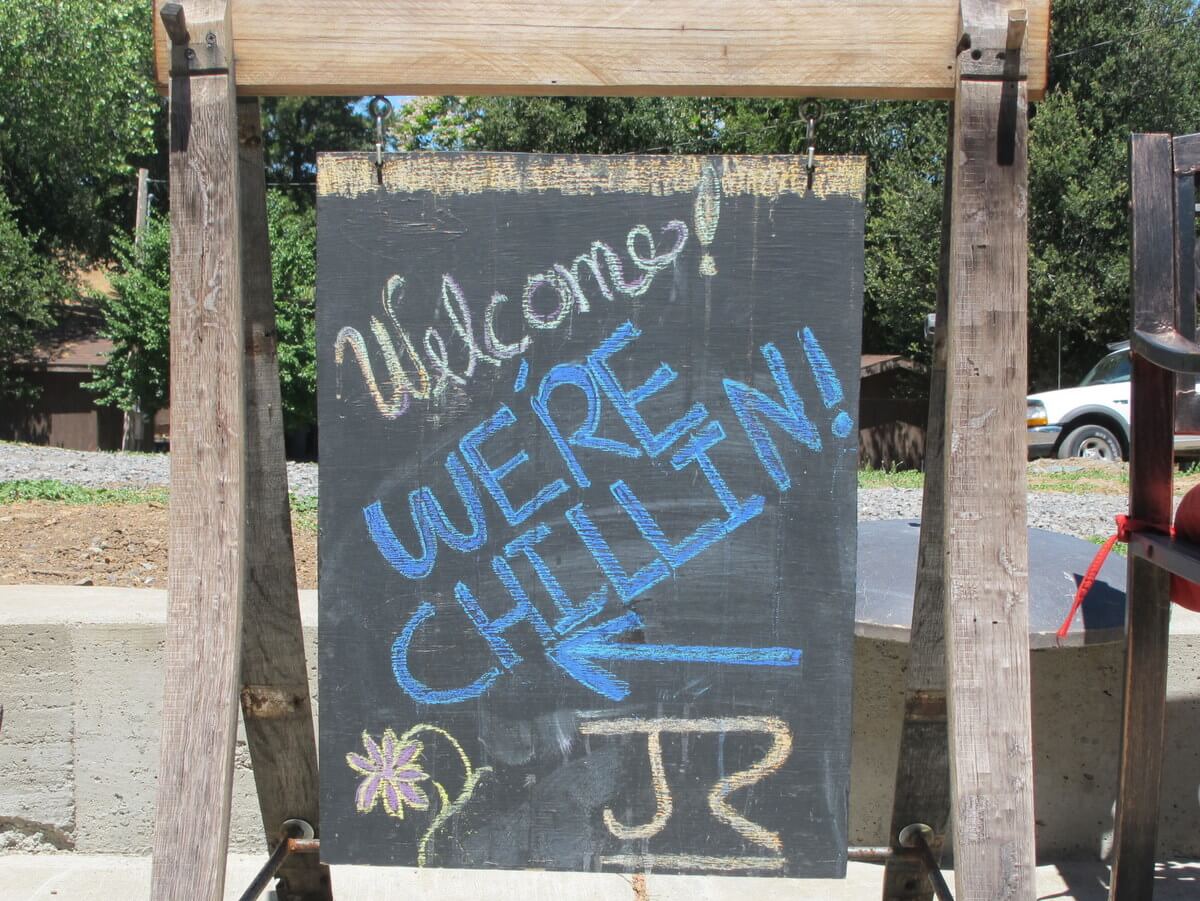 Welcome!
WE'RE
CHILLIN!
JR